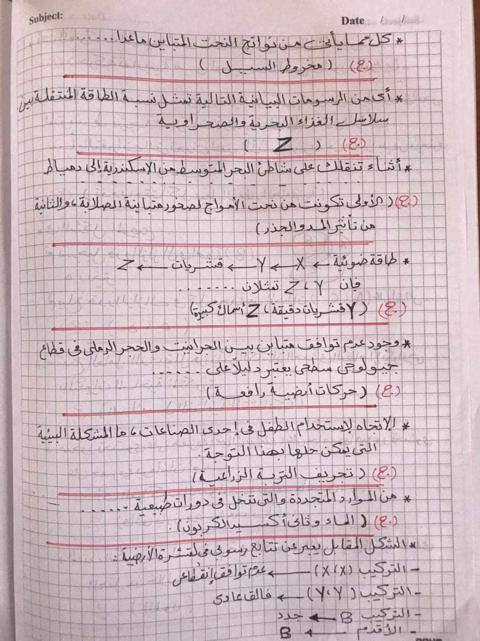 Subject:
Date / /
* كل مما يأتي من نواتج النحت المتباين ماعدا...
(ج) ( مخروط السيل )
* أى من الرسومات البيانية التالية تمثل نسبة الطاقة المنتقلة بين
سلاسل الغذاء البحرية والصحراوية
(ج) ( Z )
* أثناء تنقلك على شاطئ البحر المتوسط من الاسكندرية إلى دمياط
(ج) ( الأولى تكونت من نحت الأمواج لصخور متباينة الصلابة، والثانية
من تأثير المد والجذر )
* طاقة ضوئية ← X ← Y ← قشريات ← Z
فإن Z ، Y تمثلان .......
(ج) ( Y قشريات دقيقة، Z أسماك كبيرة )
* وجود عدم توافق متباين بين الجرانيت والحجر الرملى فى قطاع
جيولوجى سطحى يعتبر دليلا على ......
(ج) ( حركات أرضية رافعة )
* الاتجاه لاستخدام الطفل فى إحدى الصناعات، ما المشكلة البيئية
التى يمكن حلها بهذا التوجة.
(ج) ( تجريف التربة الزراعية )
* من الموارد المتجددة والتى تتدخل فى دورات طبيعية ......
(ج) ( الماء وثانى أكسيد الكربون ).
* الشكل المقابل يعبر عن تتابع رسوبى فى القشرة الأرضية:
- التركيب (X،X) ← عدم توافق إنقطاعى
- التركيب (Y،Y) ← فالق عادى
- التركيب B ← جدد
- الأقدم ← B